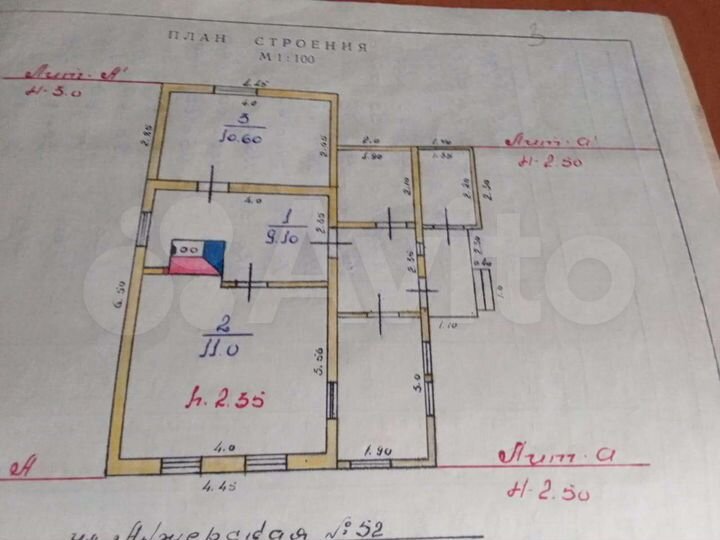 3
ПЛАН СТРОЕНИЯ
М 1:100
Лит. А'
Н-3.0
4.45
4.0
3
10.60
2.85
2.65
2.0
1.80
1.40
Лит. а'
Н 2.50
2.10
2.20
2.30
4.0
1
9.10
2.35
2.35
2.30
1.0
1.10
6.50
2
11.0
h. 2.35
5.56
3.0
4.0
1.90
4.45
А
Лит. а
Н-2.50
Avito
№ 52